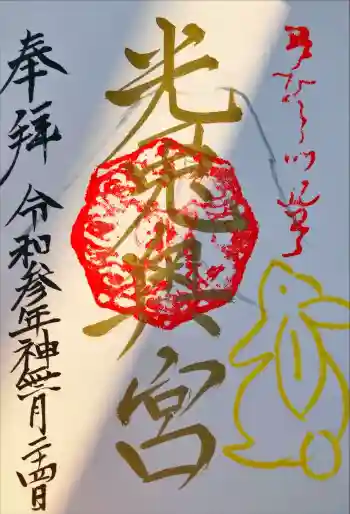 光兎奥宮
奉拝 令和参年神無月二十四日